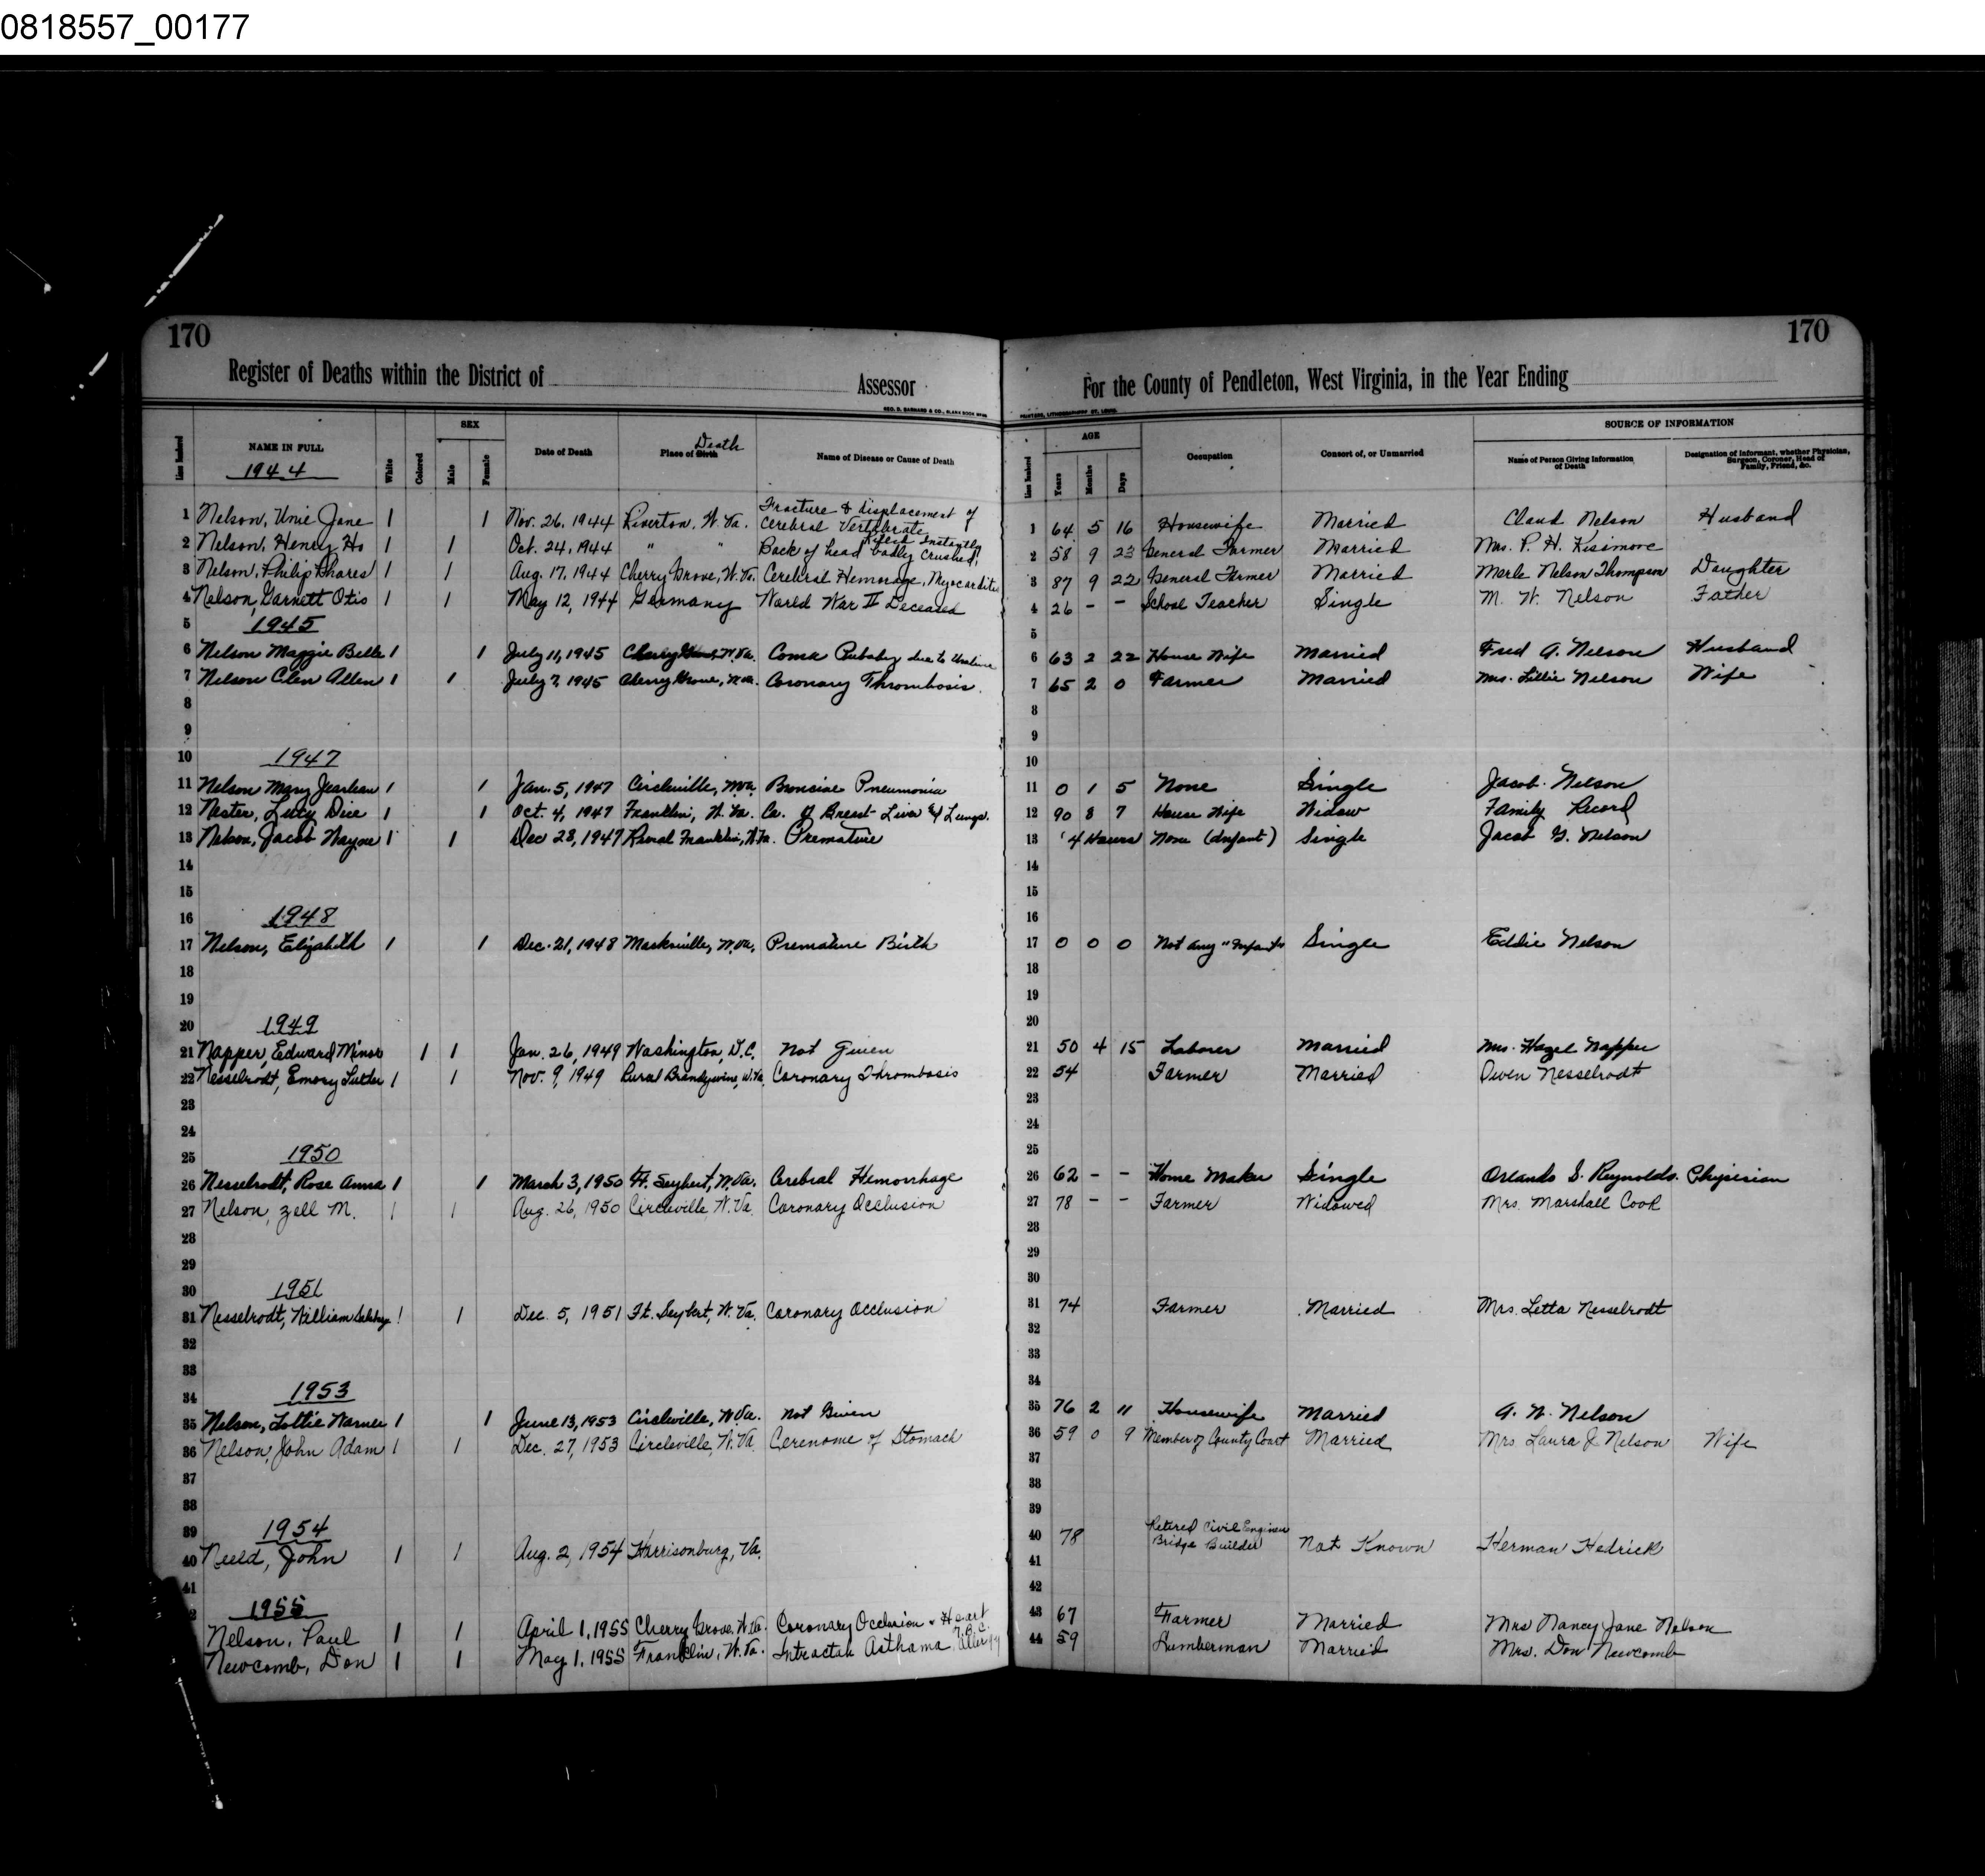 0818557_00177
170
170
Register of Deaths within the District of Assessor
For the County of Pendleton, West Virginia, in the Year Ending
GEO. D. BARNARD & CO., BLANK BOOK
PRINTERS, LITHOGRAPHERS ST. LOUIS.
Line Numbered NAME IN FULL White Colored SEX Male Female Date of Death Place of Birth Death Name of Disease or Cause of Death
Line Numbered AGE Years Months Days Occupation Consort of, or Unmarried SOURCE OF INFORMATION Name of Person Giving Information of Death Designation of Informant, whether Physician, Surgeon, Coroner, Head of Family, Friend, &c.
1944
1 Nelson, Unie Jane 1 1 Nov. 26, 1944 Riverton, W. Va. Fracture & Displacement of Cerebral Vertebrate 1 64 5 16 Housewife Married Claud Nelson Husband
2 Nelson, Henry Ho 1 1 Oct. 24, 1944 " " Back of head badly crushed, Killed Instantly 2 58 9 23 General Farmer Married Mrs. P. H. Kisimore
3 Nelson, Philip Phares 1 1 Aug. 17, 1944 Cherry Grove, W. Va. Cerebral Hemorage, Myocarditis 3 87 9 22 General Farmer Married Merle Nelson Thompson Daughter
4 Nelson, Garnett Otis 1 1 May 12, 1944 Germany World War II Deceased 4 26 - - School Teacher Single M. W. Nelson Father
5 1945 5
6 Nelson Maggie Belle 1 1 July 11, 1945 Cherry Grove, W. Va. Coma Probably due to 6 63 2 22 House Wife Married Fred A. Nelson Husband
7 Nelson Clen Allen 1 1 July 7, 1945 Cherry Grove, W. Va. Coronary Thrombosis. 7 65 2 0 Farmer Married Mrs. Lillie Nelson Wife
8 8
9 9
10 1947 10
11 Nelson Mary Jearlean 1 1 Jan. 5, 1947 Circleville, W. Va. Pneumonia 11 0 1 5 None Single Jacob Nelson
12 Nester, Lucy Dice 1 1 Oct. 4, 1947 Franklin, W. Va. Ca. of Breast Liver & Lungs. 12 90 8 7 House Wife Widow Family Record
13 Nelson, Jacob Wayne 1 1 Dec 28, 1947 Rural Franklin, W. Va. Premature 13 4 Hours None (Infant) Single Jacob G. Nelson
14 14
15 15
16 1948 16
17 Nelson, Elizabeth 1 1 Dec. 21, 1948 Marksville, W. Va. Premature Birth 17 0 0 0 Not any "Infant" Single Eddie Nelson
18 18
19 19
20 1949 20
21 Napper, Edward Minor 1 1 Jan. 26, 1949 Washington, D.C. Not Given 21 50 4 15 Laborer Married Mrs. Hazel Napper
22 Nesselrodt, Emory Luther 1 1 Nov. 9, 1949 Rural Brandywine, W. Va. Coronary Thrombosis 22 54 Farmer Married Owen Nesselrodt
23 23
24 24
25 1950 25
26 Nesselrodt, Rose Anna 1 1 March 3, 1950 Ft. Seybert, W. Va. Cerebral Hemorrhage 26 62 - - Home Maker Single Orlando S. Reynolds. Physician
27 Nelson, Zell M. 1 1 Aug. 26, 1950 Circleville, W. Va. Coronary Occlusion 27 78 - - Farmer Widowed Mrs. Marshall Cook
28 28
29 29
30 1951 30
31 Nesselrodt, William 1 1 Dec. 5, 1951 Ft. Seybert, W. Va. Coronary Occlusion 31 74 Farmer Married Mrs. Letta Nesselrodt
32 32
33 33
34 1953 34
35 Nelson, Lottie Warner 1 1 June 13, 1953 Circleville, W. Va. Not Given 35 76 2 11 Housewife Married A. W. Nelson
36 Nelson, John Adam 1 1 Dec. 27, 1953 Circleville, W. Va. Cerenome of Stomach 36 59 0 9 Member of County Court Married Mrs. Laura J. Nelson Wife
37 37
38 38
39 1954 39
40 Neeld, John 1 1 Aug. 2, 1954 Harrisonburg, Va. 40 78 Retired Civil Engineer Bridge Builder Not Known Herman Hedrick
41 41
1955 42
Nelson, Paul 1 1 April 1, 1955 Cherry Grove, W. Va. Coronary Occlusion & Heart 43 67 Farmer Married Mrs Nancy Jane Nelson
Newcomb, Don 1 1 May 1, 1955 Franklin, W. Va. Intractak Asthama, T.B.C. Allergy 44 59 Lumberman Married Mrs. Don Newcomb